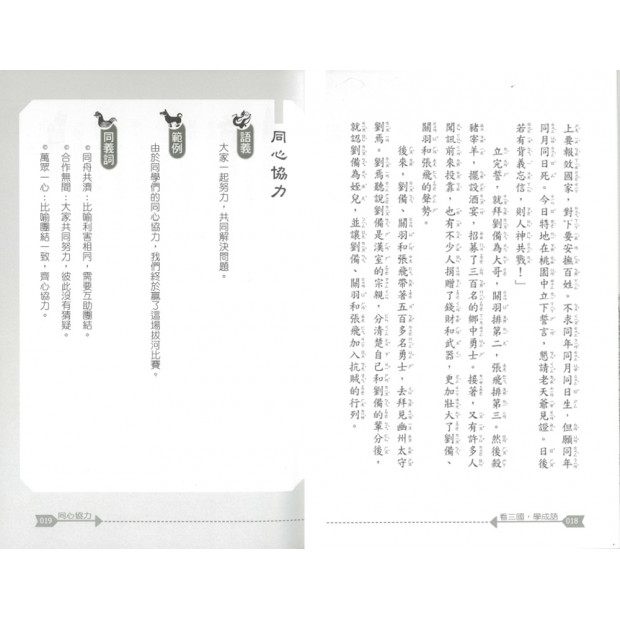 上要報效國家，對下要安撫百姓。不求同年同月同日生，但願同年
同月同日死。今日特地在桃園中立下誓言，懇請老天爺見證。日後
若有背義忘信，則人神共戮！」
立完誓，就拜劉備為大哥，關羽排第二，張飛排第三。然後殺
豬宰羊，擺設酒宴，招募了三百名的鄉中勇士。接著，又有許多人
聞訊前來投靠，也有不少人捐贈了錢財和武器，更加壯大了劉備、
關羽和張飛的聲勢。
後來，劉備、關羽和張飛帶著五百多名勇士，去拜見幽州太守
劉焉。劉焉聽說劉備是漢室的宗親，分清楚自己和劉備的輩分後，
就認劉備為姪兒，並讓劉備、關羽和張飛加入抗賊的行列。
看三國‧學成語
018
同心協力
語義
大家一起努力，共同解決問題。
範例
由於同學們的同心協力，我們終於贏了這場拔河比賽。
同義詞
◎同舟共濟：比喻利害相同，需要互助團結。
◎合作無間：大家共同努力，彼此沒有猜疑。
◎萬眾一心：比喻團結一致，齊心協力。
019
同心協力